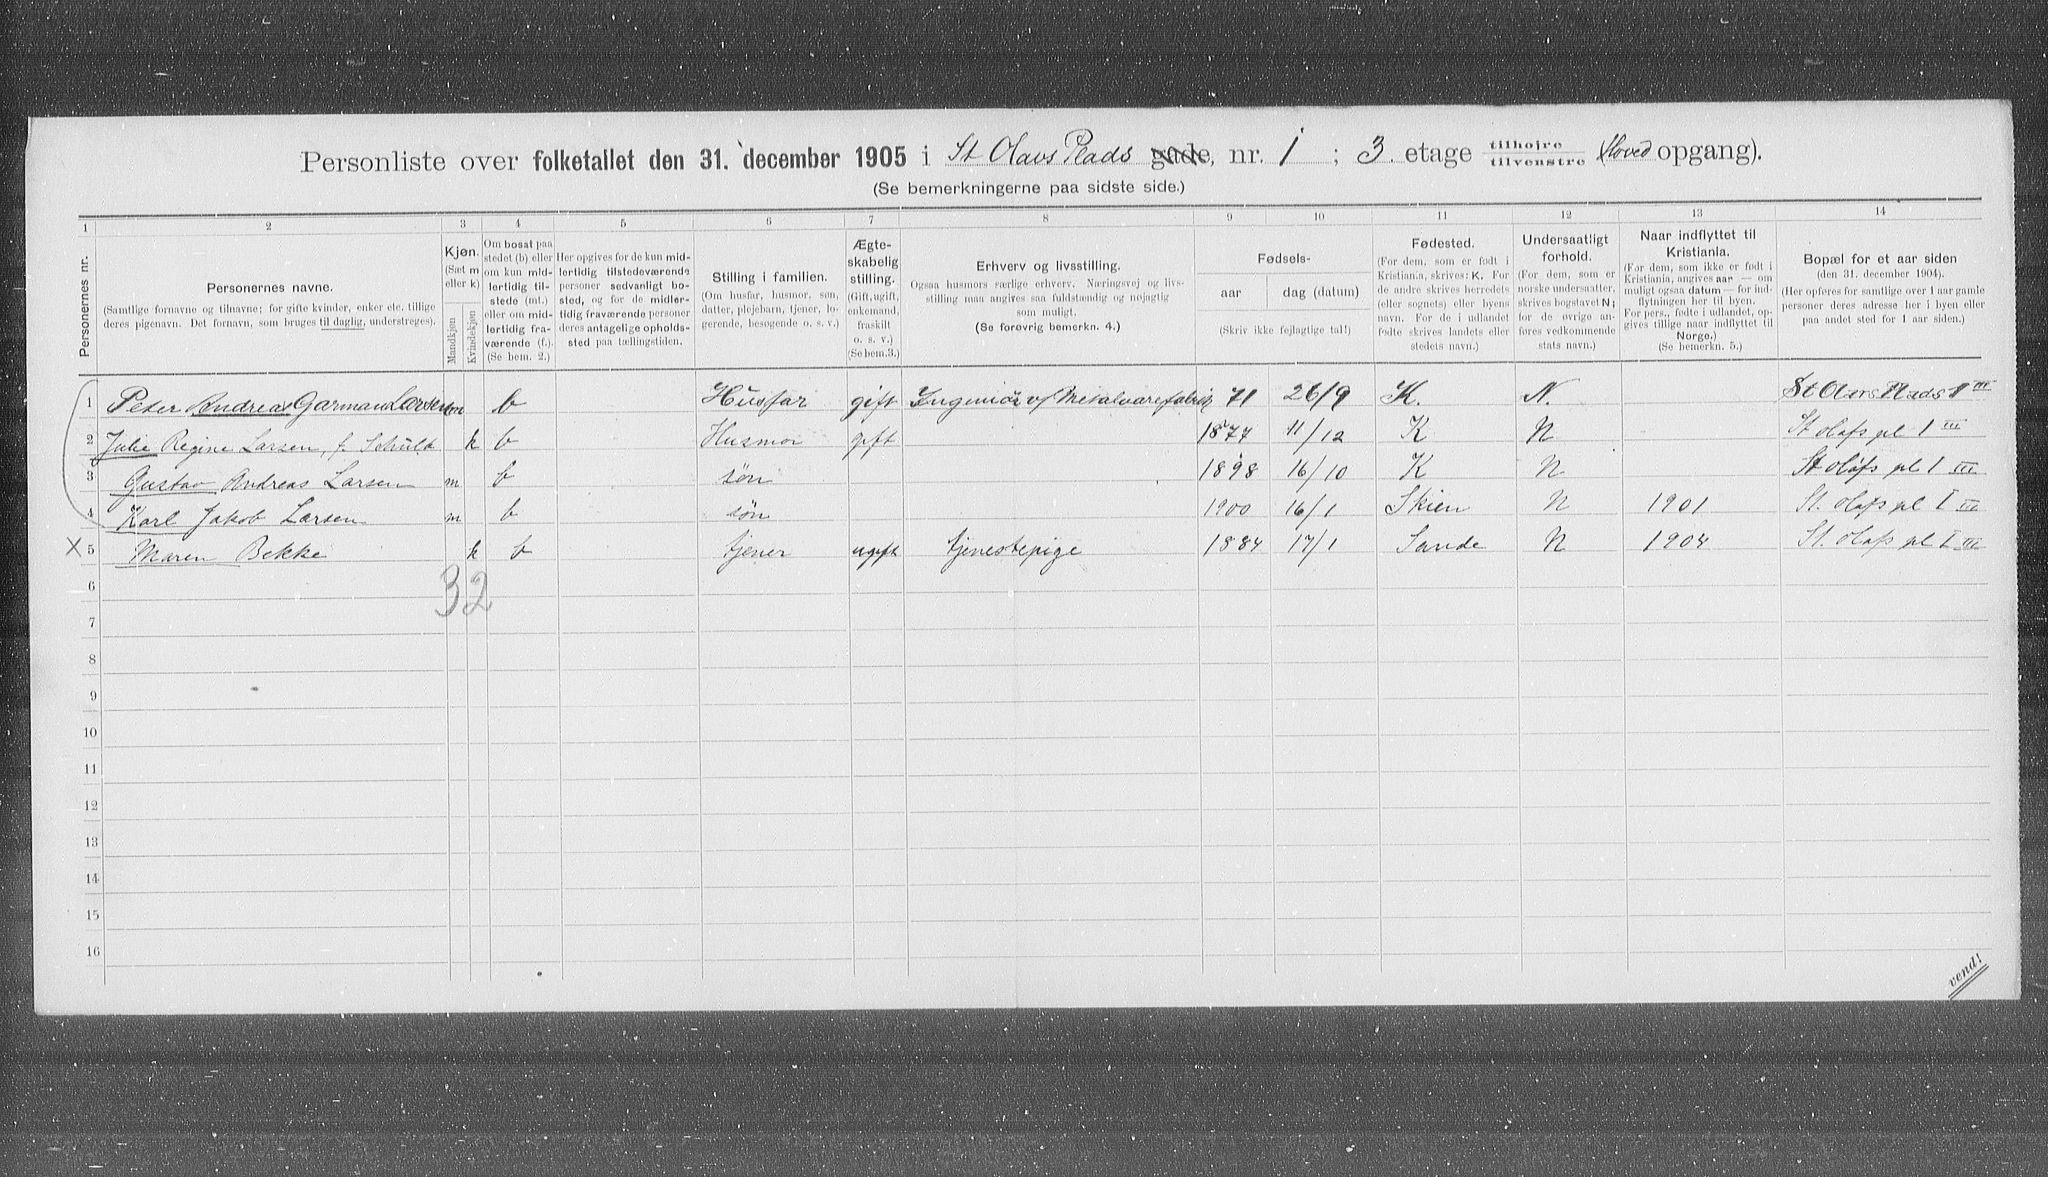 Personliste over folketallet den 31. december 1905 i St Olavs Plads gade, nr. 1 ; 3. etage tilhøjre tilvenstre Hoved opgang).
(Se bemerkningerne paa sidste side.)
1 2 3 4 5 6 7 8 9 10 11 12 13 14
Personernes nr.
Personernes navne.
(Samtlige fornavne og tilnavne; for gifte kvinder, enker etc. tillige
deres pigenavn. Det fornavn, som bruges til daglig, understreges).
Kjøn.
(Sæt m
eller k)
Mandkjøn
Kvindekjøn
Om bosat paa
stedet (b) eller
om kun mid-
lertidig til-
stede (mt.)
eller om mid-
lertidig fra-
værende (f.).
(Se bem. 2.)
Her opgives for de kun mid-
lertidig tilstedeværende
personer sedvanligt bo-
sted, og for de midler-
tidig fraværende personer
deres antagelige opholds-
sted paa tællingstiden.
Stilling i familien.
(Om husfar, husmor, søn,
datter, plejebarn, tjener, lo-
gerende, besøgende o. s. v.)
Ægte-
skabelig
stilling.
(Gift, ugift,
enkemand,
fraskilt
o. s. v.)
(Se bem.3.)
Erhverv og livsstilling.
Ogsaa husmors særlige erhverv. Næringsvej og livs-
stilling maa angives saa fuldstændig og nøjagtig
som muligt.
(Se forøvrig bemerkn. 4.)
Fødsels-
aar
dag (datum)
(Skriv ikke fejlagtige tal!)
Fødested.
(For dem, som er født i
Kristiania, skrives: K. For
de andre skrives herredets
(eller sognets) eller byens
navn. For de i udlandet
fødte skrives landets eller
stedets navn.)
Undersaatligt
forhold.
(For dem, som er
norske undersaatter,
skrives bogstavet N;
for de øvrige an-
føres vedkommende
stats navn.)
Naar indflyttet til
Kristiania.
(For dem, som ikke er født i
Kristiania, angives aar — om
muligt ogsaa datum — for ind-
flytningen her til byen.
For pers., fødte i udlandet, op-
gives tillige naar indflyttet til
Norge.)
(Se bemerkn. 5.)
Bopæl for et aar siden
(den 31. december 1904).
(Her opføres for samtlige over 1 aar gamle
personer deres adresse her i byen eller
paa andet sted for 1 aar siden.)
1 Peter Andreas Garman Larsen m b Husfar gift Ingeniør v/ Metalvarefabrik 71 26/9 K. N. St Olavs Plads 1 III
2 Julie Regine Larsen, f. Schultz k b Husmor gift 1877 11/12 K N St Olafs pl 1 III
3 Gustav Andreas Larsen m b søn 1898 16/10 K N St Olafs pl 1 III
4 Karl Jakob Larsen m b søn 1900 16/1 Skien N 1901 St. Olafs pl 1 III
X 5 Maren Bekke k b tjener ugift tjenestepige 1884 17/1 Sande N 1904 St. Olafs pl 1 III
32
6
7
8
9
10
11
12
13
14
15
16
vend!